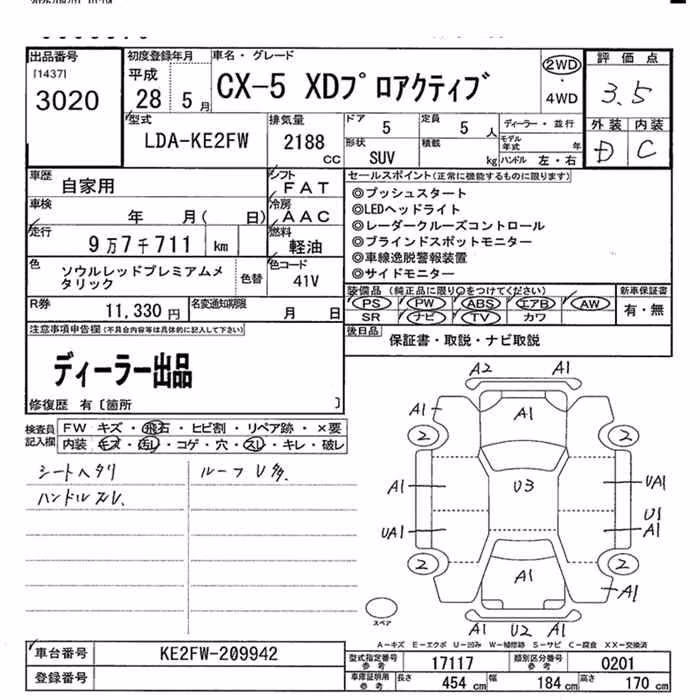 出品番号
[1437]
3020
初度登録年月
平成
28 5月
車名・グレード
CX-5 XDプロアクティブ
2WD
・
4WD
評価点
3.5
外装 内装
D C
型式
LDA-KE2FW
排気量
2188
CC
ドア
5
定員
5人
形状
SUV
積載
kg
ディーラー・並行
モデル年式 年
ハンドル 左・右
車歴
自家用
シフト
FAT
車検
年 月( 日)
冷房
AAC
走行
9万7千711 km
燃料
軽油
色
ソウルレッドプレミアムメタリック
色替
色コード
41V
R券
11,330円
名変通知期限
月 日
セールスポイント(正常に機能するものに限ります)
◎プッシュスタート
◎LEDヘッドライト
◎レーダークルーズコントロール
◎ブラインドスポットモニター
◎車線逸脱警報装置
◎サイドモニター
装備品(純正品に限り○をつけてください)
新車保証書
PS PW ABS エアB AW
SR ナビ TV カワ
有・無
後日品
保証書・取説・ナビ取説
注意事項申告欄(不具合内容等は具体的に記入して下さい)
ディーラー出品
修復歴 有〔箇所 〕
検査員記入欄
FW キズ・飛石・ヒビ割・リペア跡・×要
内装 キズ・汚れ・コゲ・穴・スレ・キレ・破レ
シートヘタリ
ハンドルスレ
ルーフU多
A2 A1
A1 A1
2 2
A1 U3 UA1
UA1 U1
A1
2 2
A1 A1
A1 U2 A1
スペア
A-キズ E-エクボ U-凹み W-補修跡 S-サビ C-腐食 XX-交換済
車台番号
KE2FW-209942
登録番号
型式指定番号
参考
17117
類別区分番号
参考
0201
車庫証明用
参考
長さ
454 cm
幅
184 cm
高さ
170 cm